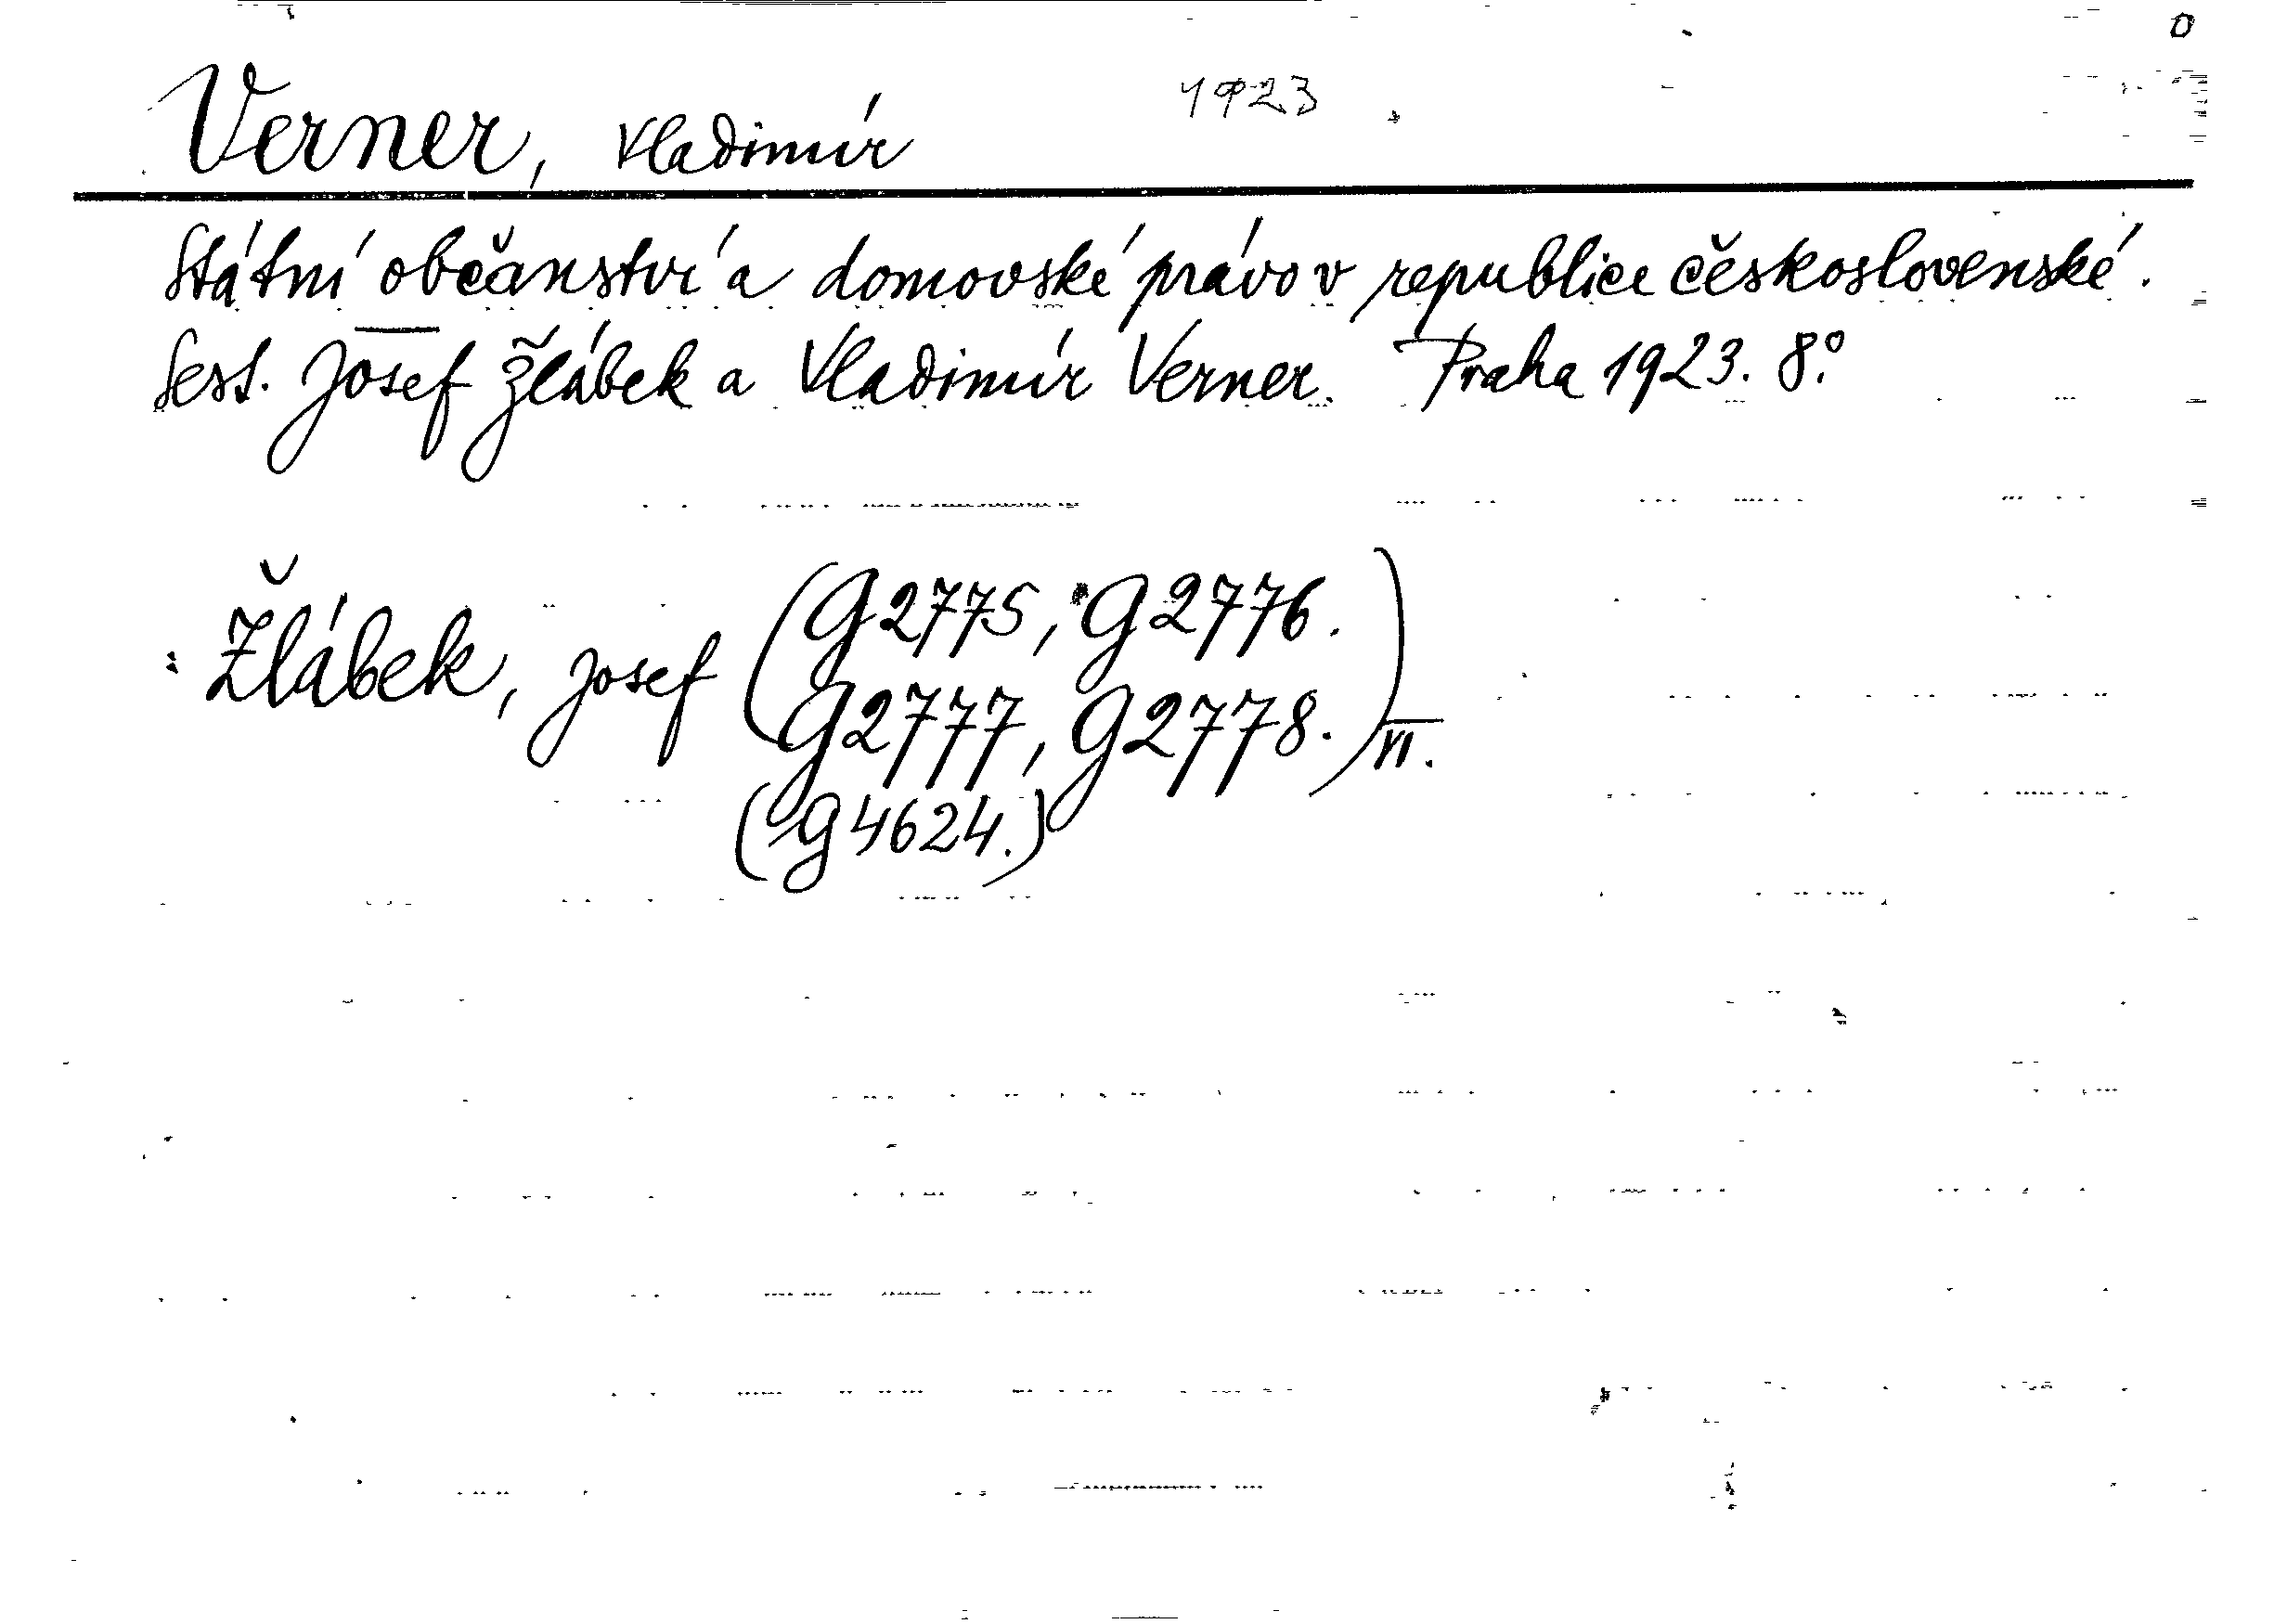 Verner, Vladimír 1923
Státní občanství a domovské právo v republice československé.
Sest. Josef Žlábek a Vladimír Verner. Praha 1923. 8°.
Žlábek, Josef (G2775, G2776.
G2777, G2778.) VI.
(G4624.)